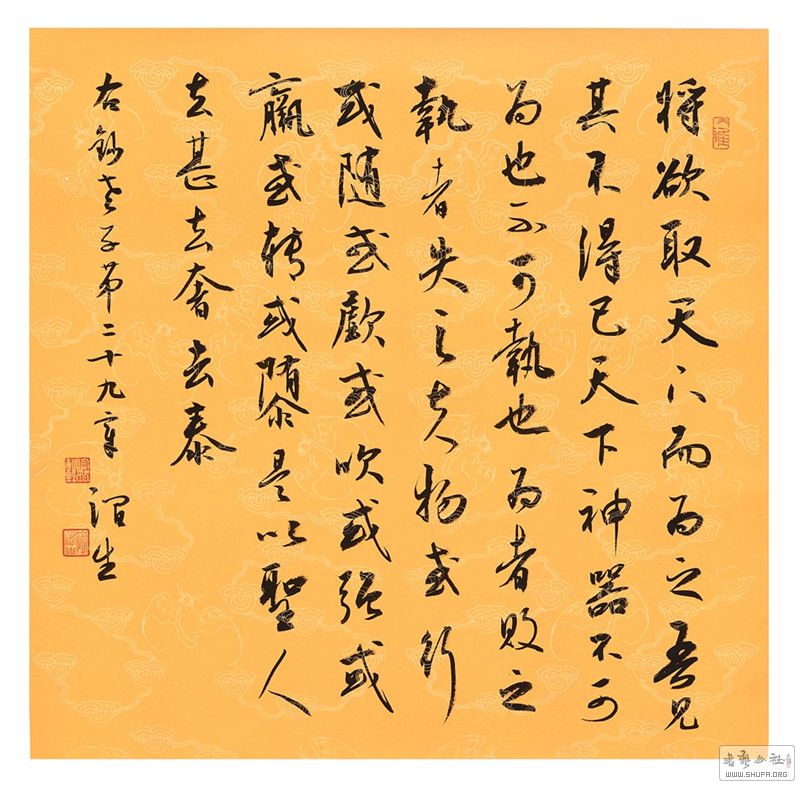 将欲取天下而为之吾见
其不得已天下神器不可
为也不可執也为者败之
執者失之夫物或行
或随或歔或吹或强或
羸或转或隳是以聖人
去甚去奢去泰
右鈔老子第二十九章 生
書艺公社
WWW.SHUFA.ORG